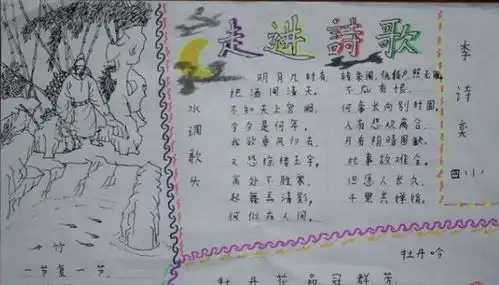 走进詩歌
李诗奕
水调歌头
明月几时有
把酒问清天.
不知天上宫阙
今夕是何年.
我欲乘风归去
又恐琼楼玉宇,
高处不胜寒.
起舞弄清影,
何似在人间.
转朱阁,低绮户,照无眠
不应有恨.
何事长向别时圆
人有悲欢离合
月有阴晴圆缺
此事故难全.
但愿人长久
千里共婵娟.
竹
一节复一节.
牡丹吟
牡丹花品冠群芳